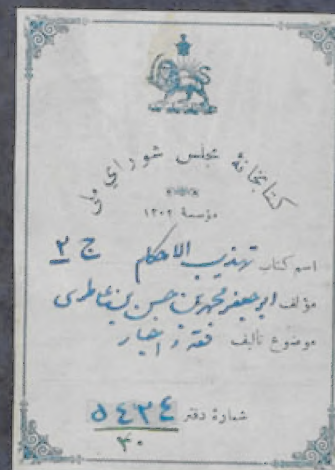 كتابخانهٔ مجلس شورای ملی
مؤسسهٔ ۱۳۰۲
اسم کتاب تهذیب الاحکام ج ۲
مؤلف ابوجعفر محمد بن حسن بن علی طوسی
موضوع تألیف فقه و اخبار
شمارهٔ دفتر ۵۴۳۴
۳۰